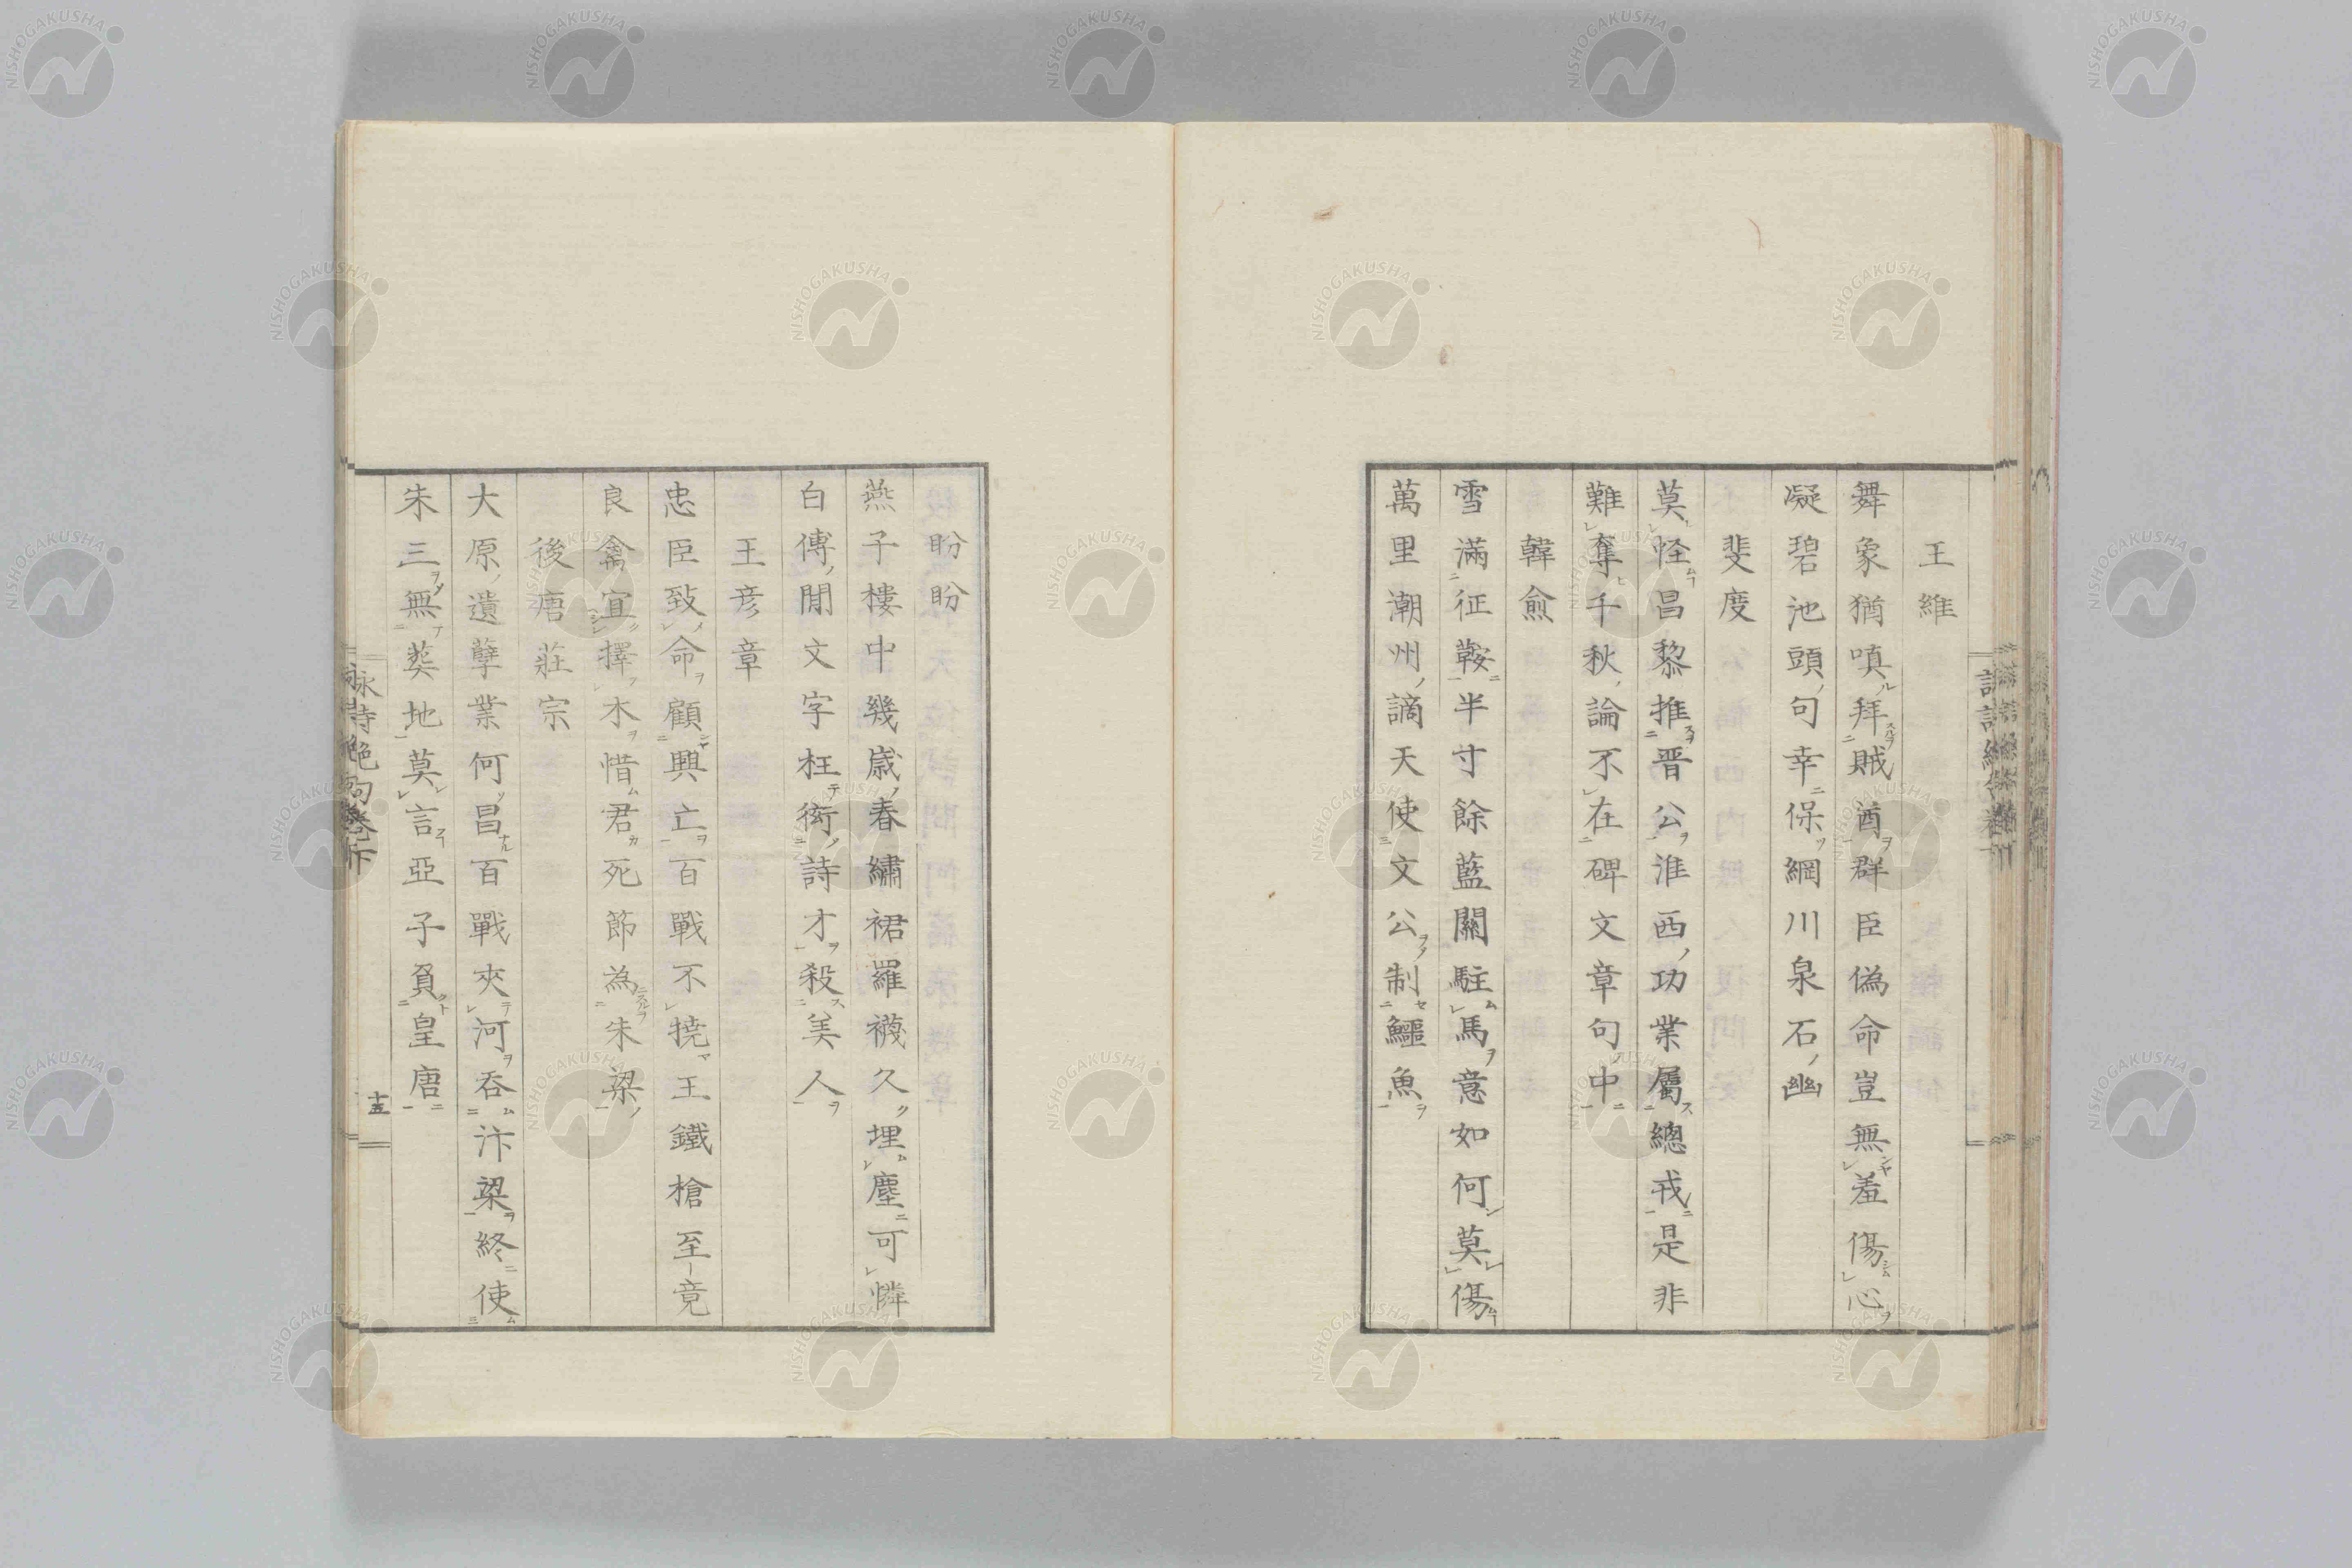 王維
舞象猶嗔拜賊酋群臣偽命豈無羞傷心
凝碧池頭句幸保網川泉石幽
斐度
莫怪昌黎推晋公淮西功業屬總戎是非
難奪千秋論不在碑文章句中
韓愈
雪滿征鞍半寸餘藍關駐馬意如何莫傷
萬里潮州謫天使文公制鱷魚
盼盼
燕子樓中幾歲春繡裙羅襪久埋塵可憐
白傅閒文字枉衒詩才殺美人
王彦章
忠臣致命顧興亡百戰不撓王鐵槍至竟
良禽宜擇木惜君死節為朱梁
後唐莊宗
大原遺孽業何昌百戰夾河吞汴梁終使
朱三無葬地莫言亞子負皇唐
詠詩絶句巻下
十五
NISHOGAKUSHA